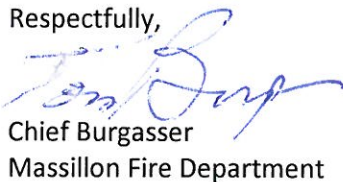 Respectfully,
Tom Burg
Chief Burgasser
Massillon Fire Department